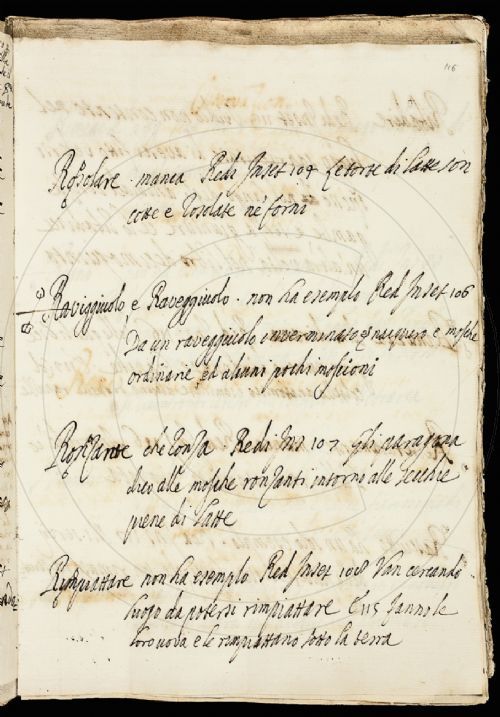 116
Rosolare. manca Redi Inset 104 le torte di latte son
cotte e rosolate ne' forni
Raviggiuolo e Raveggiuolo. non ha esempio Red Inset 106
Da un raveggiuolo inverminato nacquero e mosche
ordinarie, ed alcuni pochi moscioni
Ronzante che ronza Redi Ins 107 gli paragona
dico alle mosche ronzanti intorno alle secchie
piene di latte
Rimpiattare non ha esempio Red Inset 108 Van cercando
luogo da potersi rimpiattare 115 fanno le
loro uova e le rimpiattano sotto la terra